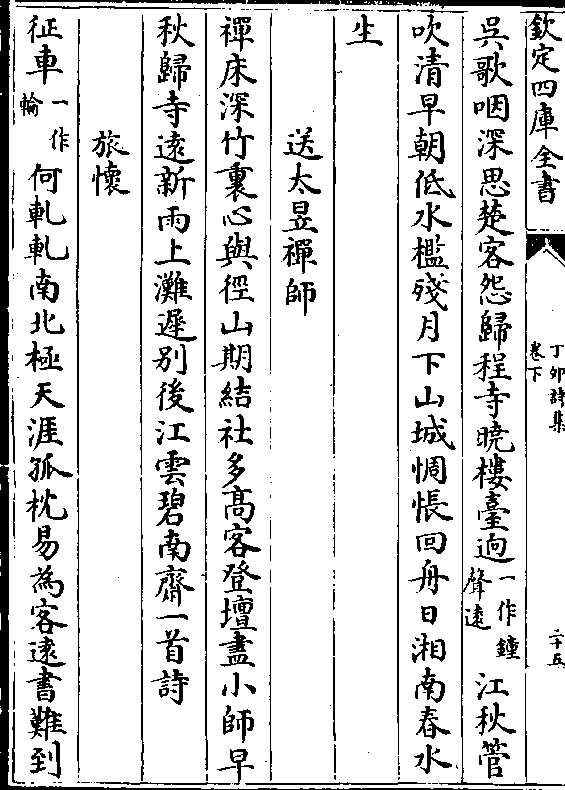 欽定四庫全書
丁卯詩集
卷下
二十五
吳歌咽深思楚客怨歸程寺曉樓臺逈一作鐘聲遠江秋管
吹清早朝低水檻殘月下山城惆悵回舟日湘南春水
生
送太昱禪師
禪床深竹裏心與徑山期結社多高客登壇盡小師早
秋歸寺遠新雨上灘遲別後江雲碧南齋一首詩
旅懷
征車一作輪何軋軋南北極天涯孤枕易為客遠書難到